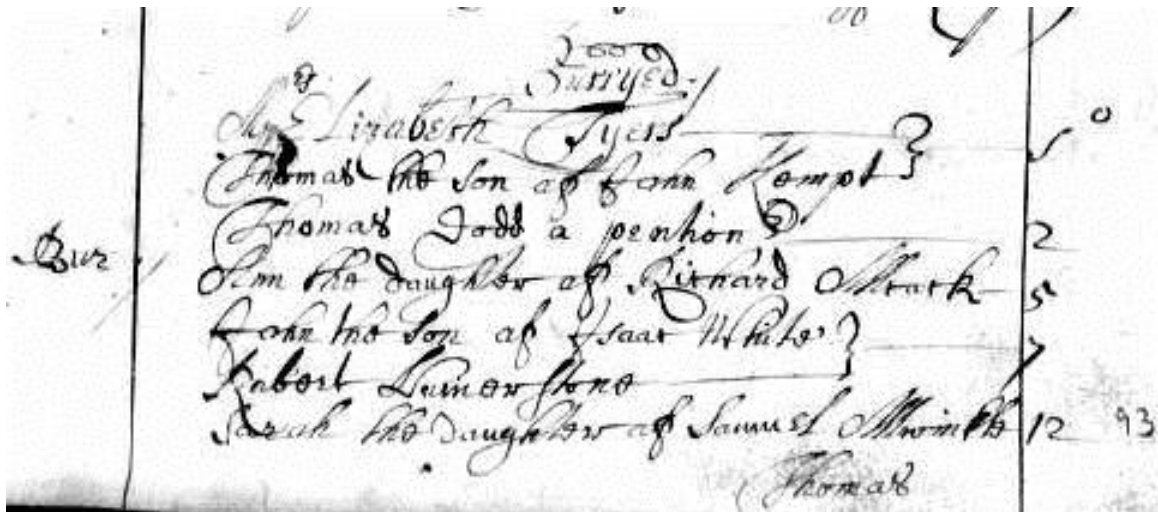 Burryed
Mrs Elizabeth Tyers
Thomas the son of John Kempt
Thomas Dodd a pention 2
Bur Ann the daughter of Richard 5
John the son of Isaac White 7
Robert
Sarah the Daughter of Samuel 12 93
Thomas